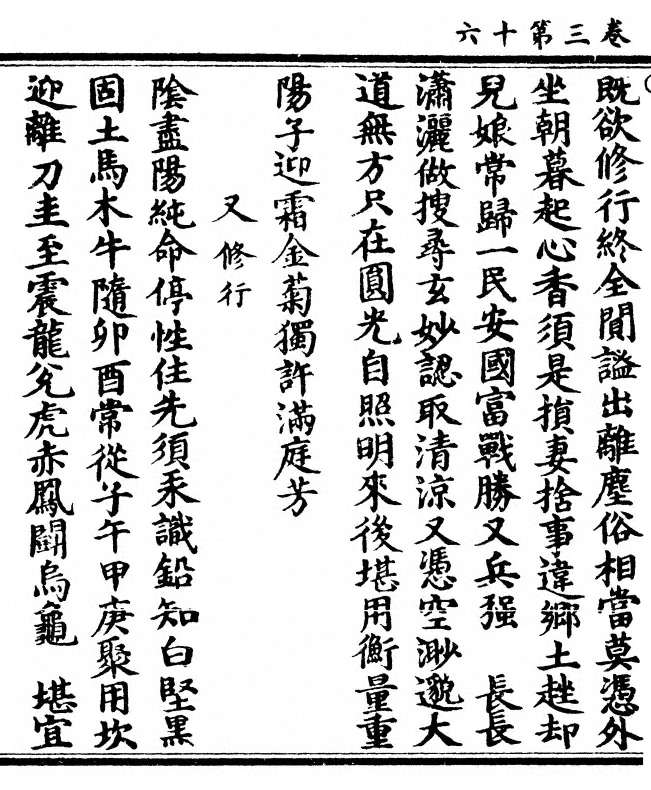 卷三第十六
既欲修行終全間謐出離塵俗相當莫憑外
坐朝暮起心香須是損妻捨事違鄉土趖却
兒娘常歸一民安國富戰勝又兵强　長長
瀟灑做搜尋玄妙認取清涼又憑空渺邈大
道無方只在圓光自照明來後堪用衡量重
陽子迎霜金菊獨許滿庭芳
又修行
陰盡陽純命停性住先須汞識鉛知白堅黑
固土馬木牛隨卯酉常從子午甲庚聚用坎
迎離刀圭至震龍兌虎赤鳳鬭烏龜　堪宜